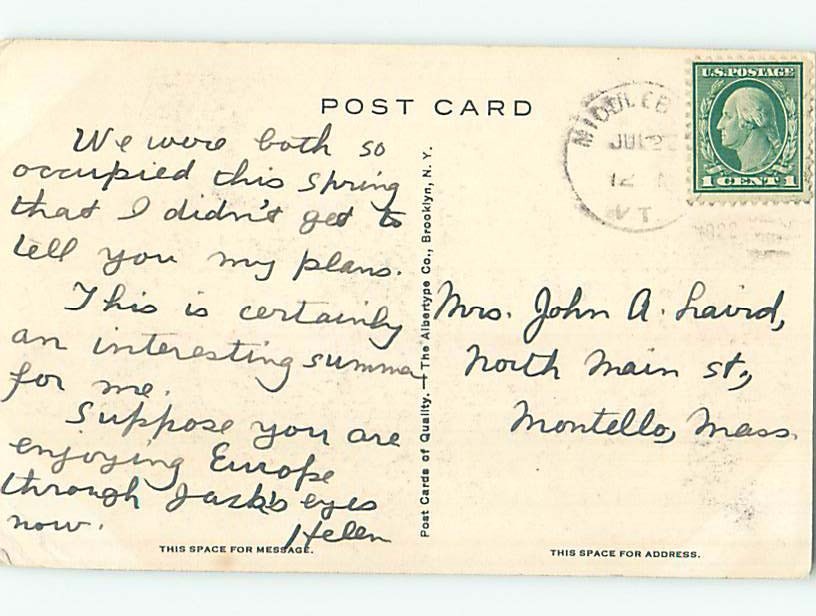 POST CARD
We were both so
occupied this spring
that I didn't get to
tell you my plans.
This is certainly
an interesting summer
for me.
Suppose you are
enjoying Europe
through Jack's eyes
now.
Helen
THIS SPACE FOR MESSAGE.
Post Cards of Quality. — The Albertype Co., Brooklyn, N. Y.
MIDDLEB
JUL
12
VT
U.S. POSTAGE
1 CENT 1
Mrs. John A. Laird,
North Main St.,
Montello, Mass.
THIS SPACE FOR ADDRESS.